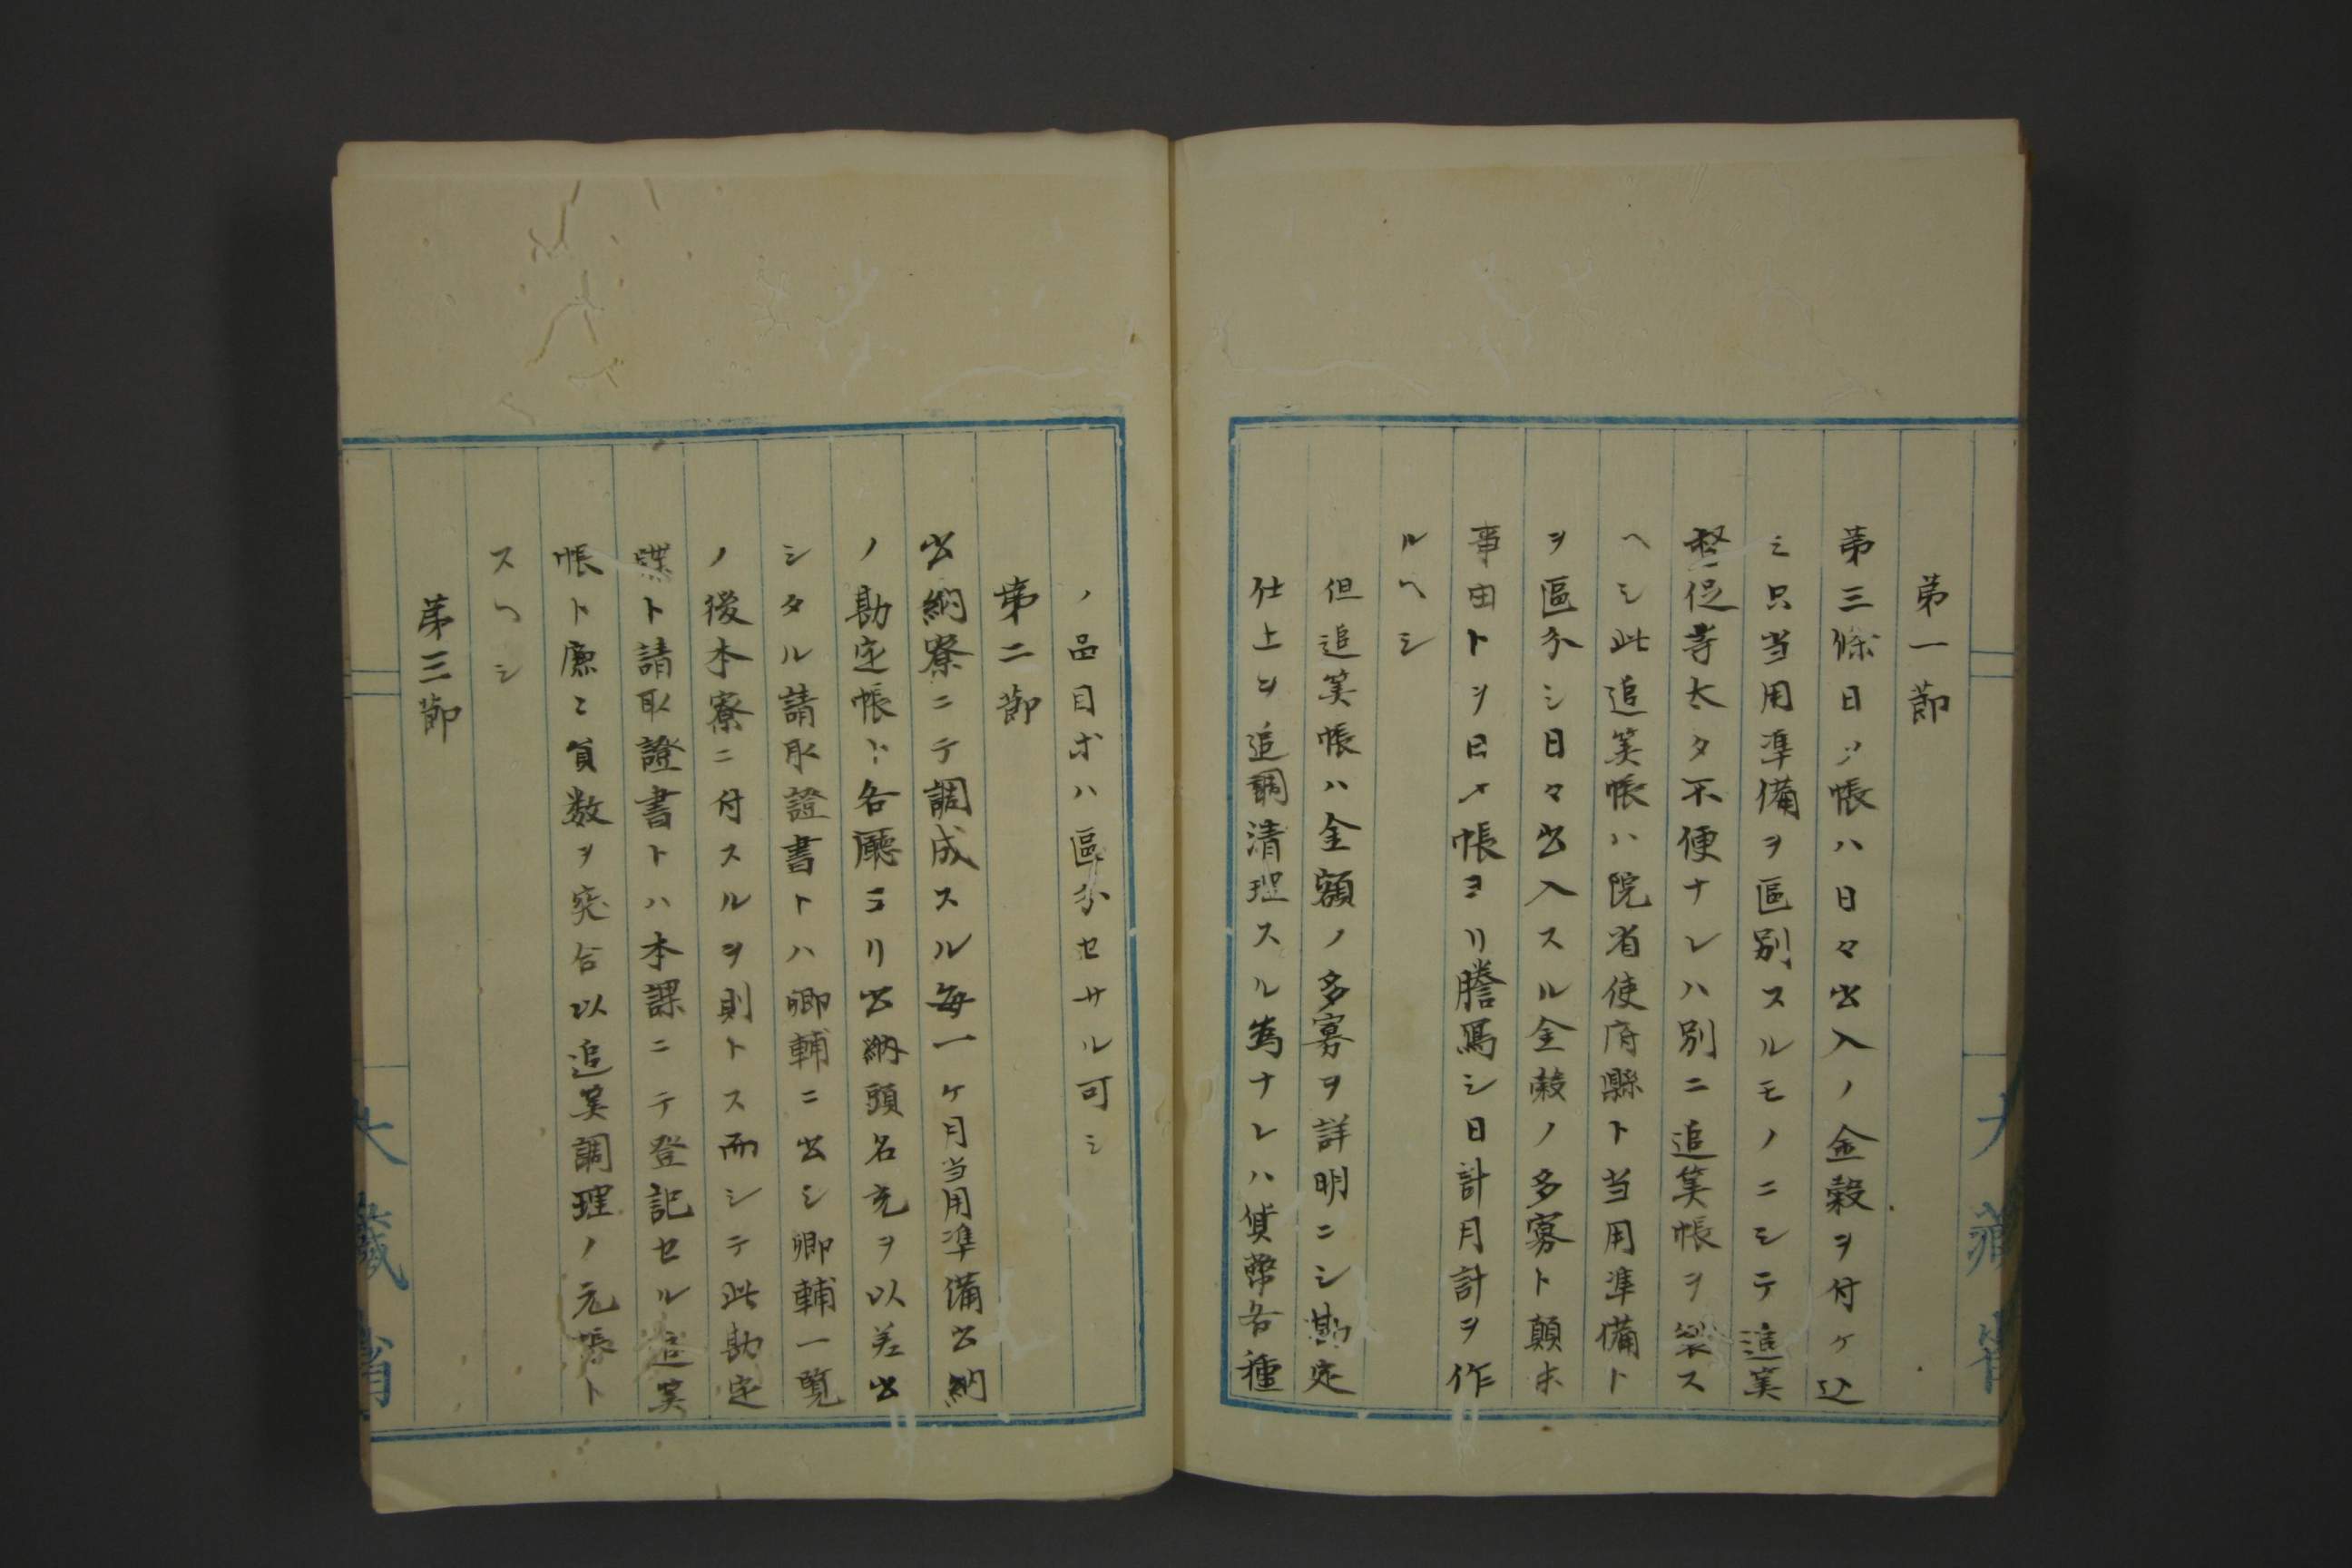 第一節
第三條日〆帳ハ日々出入ノ金穀ヲ付ケ込
ミ只当用準備ヲ區別スルモノニシテ追算
督促等太タ不便ナレハ別ニ追算帳ヲ製ス
ヘシ此追算帳ハ院省使府縣ト当用準備ト
ヲ區分シ日々出入スル金穀ノ多寡ト顛末
事由トヲ日〆帳ヨリ謄寫シ日計月計ヲ作
ルヘシ
但追算帳ハ金額ノ多寡ヲ詳明ニシ勘定
仕上ヲ追調清理スル為ナレハ貨幣各種
ノ品目ホハ區分セサル可シ
第二節
出納寮ニテ調成スル毎一ケ月当用準備出納
ノ勘定帳ト各廳ヨリ出納頭名宛ヲ以差出
シタル請取證書トハ卿輔ニ出シ卿輔一覧
ノ後本寮ニ付スルヲ則トス而シテ此勘定
帳ト請取證書トハ本課ニテ登記セル追算
帳ト廉〻員数ヲ突合以追算調理ノ元帳ト
スヘシ
第三節
大藏省
大藏省